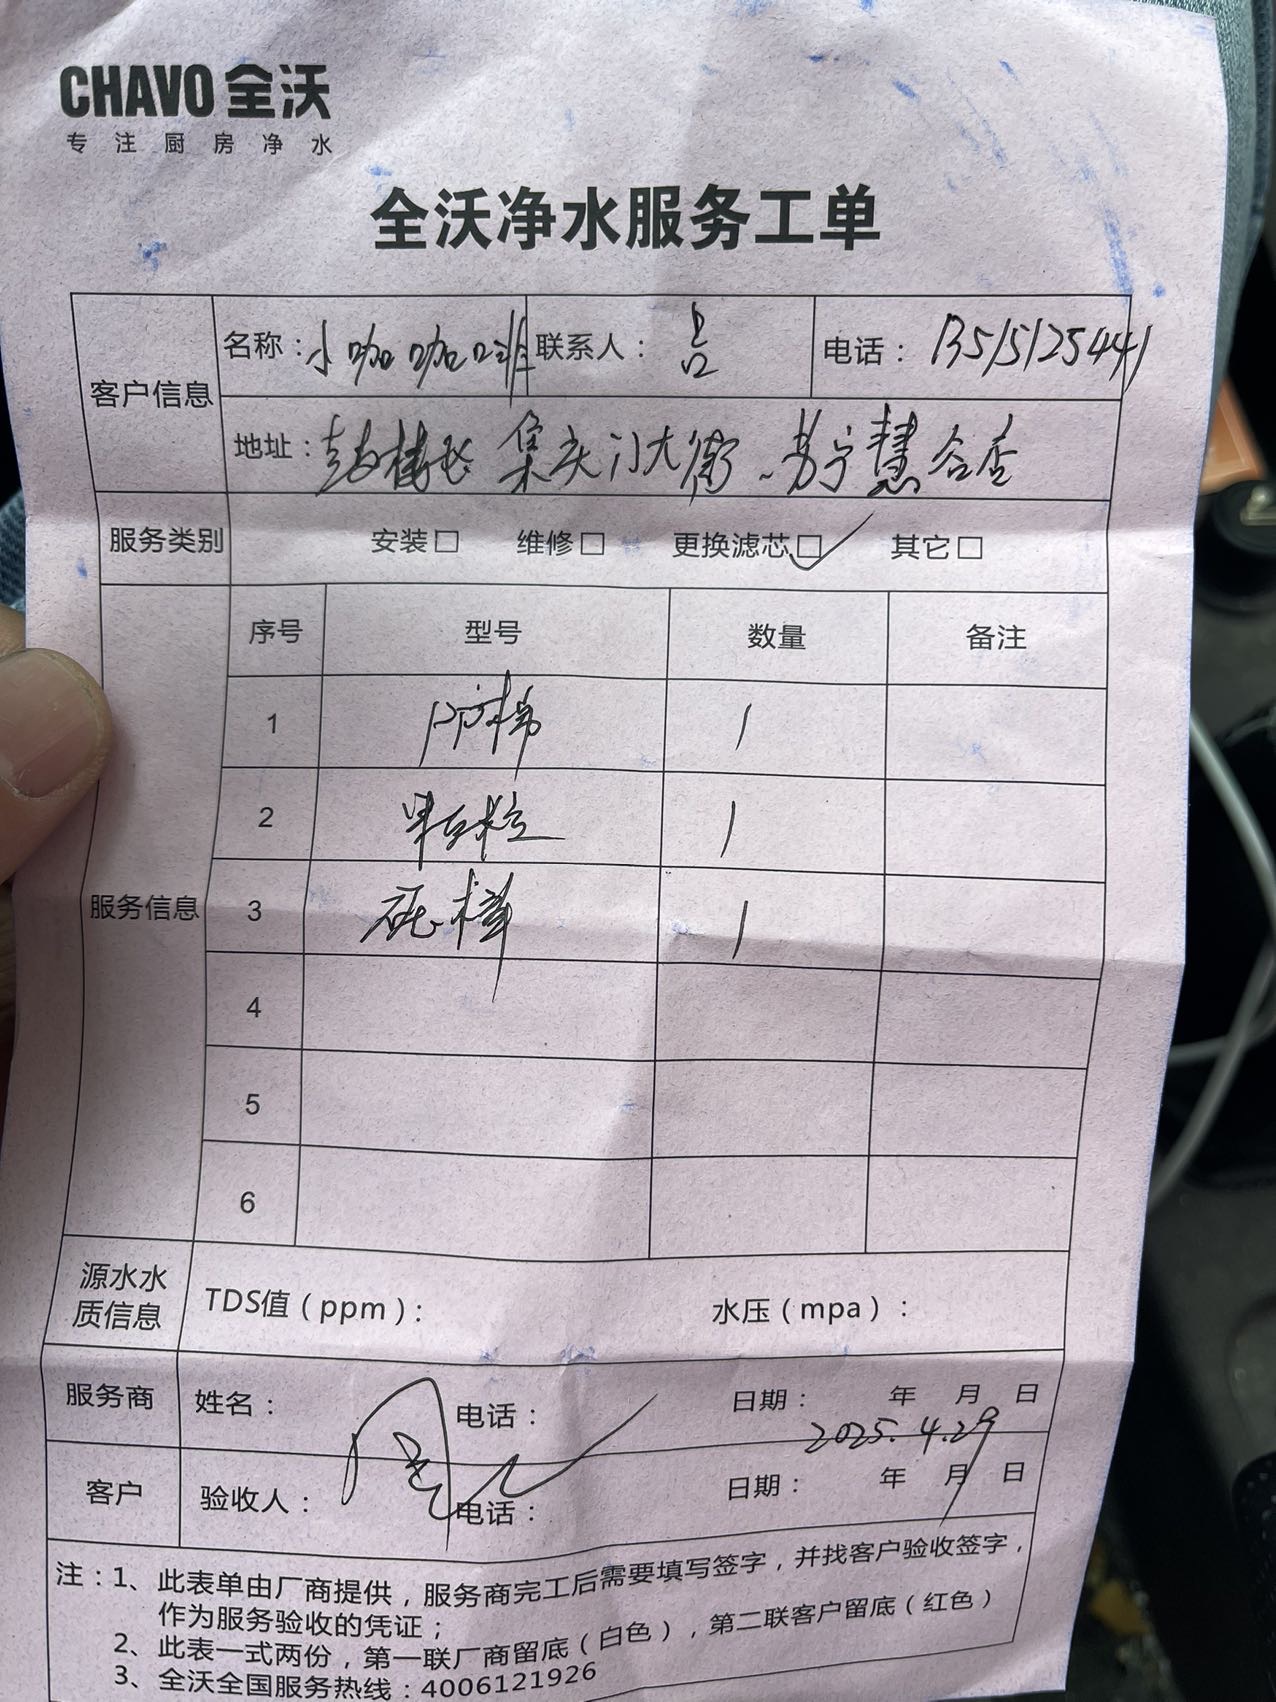 CHAVO 全沃
专注厨房净水
全沃净水服务工单
客户信息
名称：小咖咖啡 联系人：吕 电话：13515125441
地址：鼓楼区 集庆门大街 苏宁慧谷
服务类别 安装□ 维修□ 更换滤芯□✓ 其它□
服务信息
序号 型号 数量 备注
1 PP棉 1
2 颗粒 1
3 1
4
5
6
源水水质信息 TDS值（ppm）： 水压（mpa）：
服务商 姓名： 电话： 日期： 年 月 日
2025.4.29
客户 验收人： 电话： 日期： 年 月 日
注：1、此表单由厂商提供，服务商完工后需要填写签字，并找客户验收签字，
作为服务验收的凭证；
2、此表一式两份，第一联厂商留底（白色），第二联客户留底（红色）
3、全沃全国服务热线：4006121926